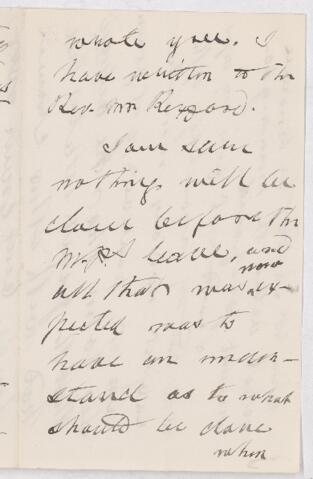 wrote you. I
have written to the
Rev. Mr Rexford.
I am sure
nothing will be
done before the
M.P.s leave, and
now
all that was ex-
pected was to
have an under-
stand as to what
should be done
when